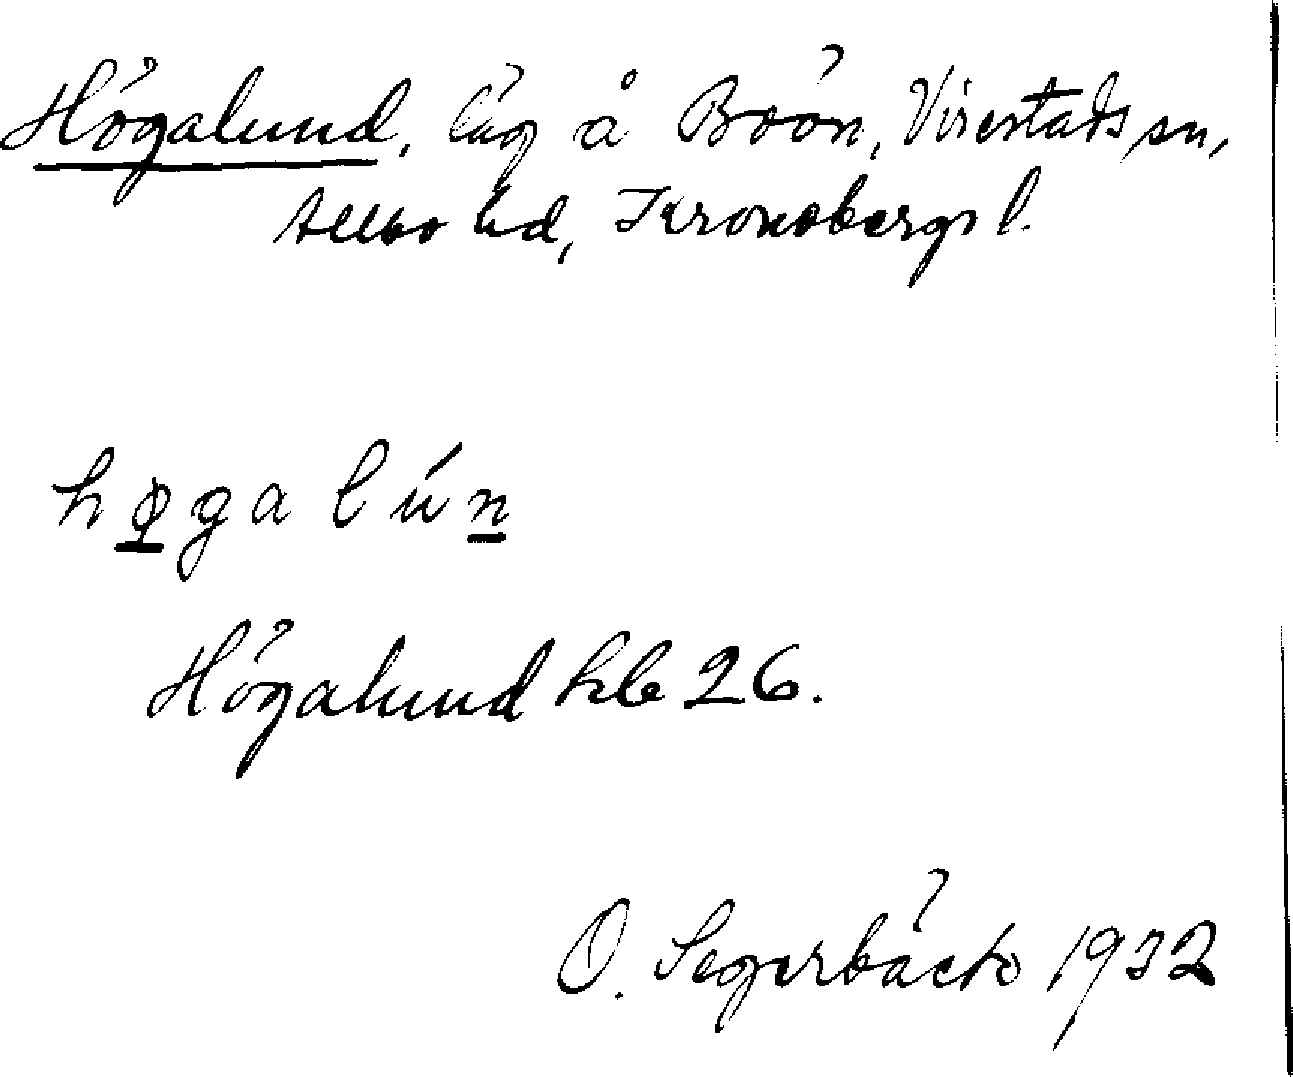 Högalund, läg å Boön, Virestads sn,
Allbo hd, Kronobergs l.
høgalún
Högalund hb 26.
O. Segerbäck 1932